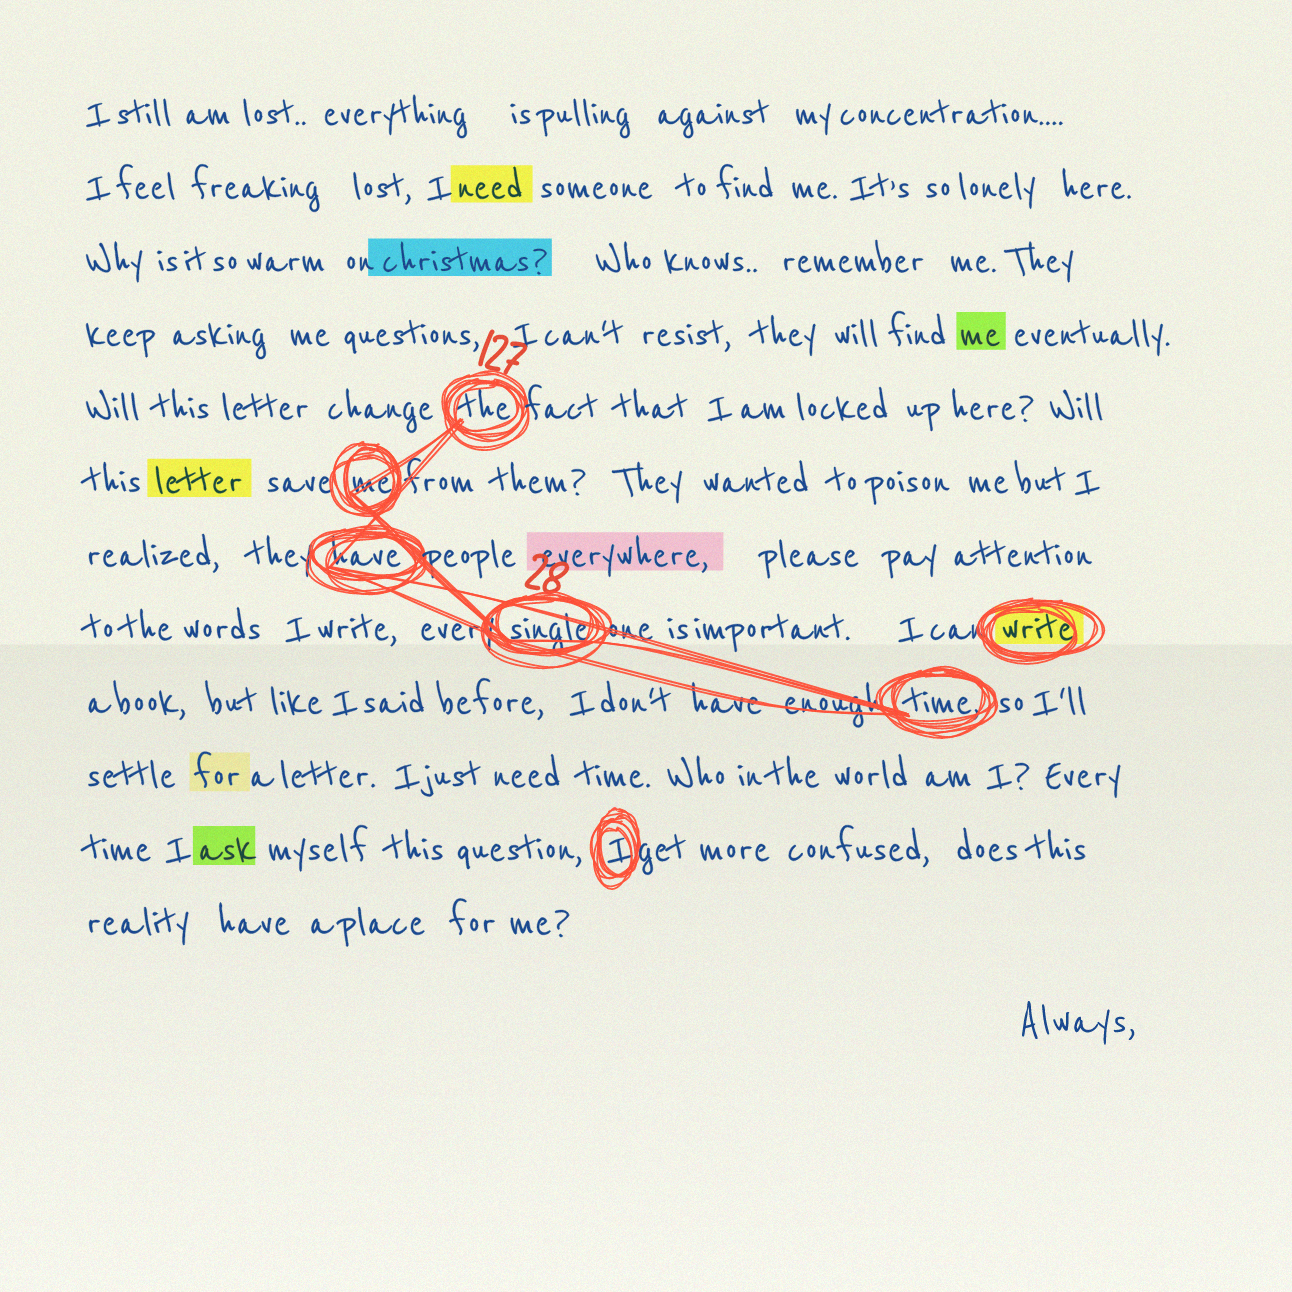 I still am lost.. everything is pulling against my concentration....
I feel freaking lost, I need someone to find me. It's so lonely here.
Why is it so warm on christmas? Who knows.. remember me. They
keep asking me questions, I can't resist, they will find me eventually.
127
Will this letter change the fact that I am locked up here? Will
this letter save me from them? They wanted to poison me but I
realized, they have people everywhere, please pay attention
28
to the words I write, every single one is important. I can write
a book, but like I said before, I don't have enough time. so I'll
settle for a letter. I just need time. Who in the world am I? Every
time I ask myself this question, I get more confused, does this
reality have a place for me?
Always,